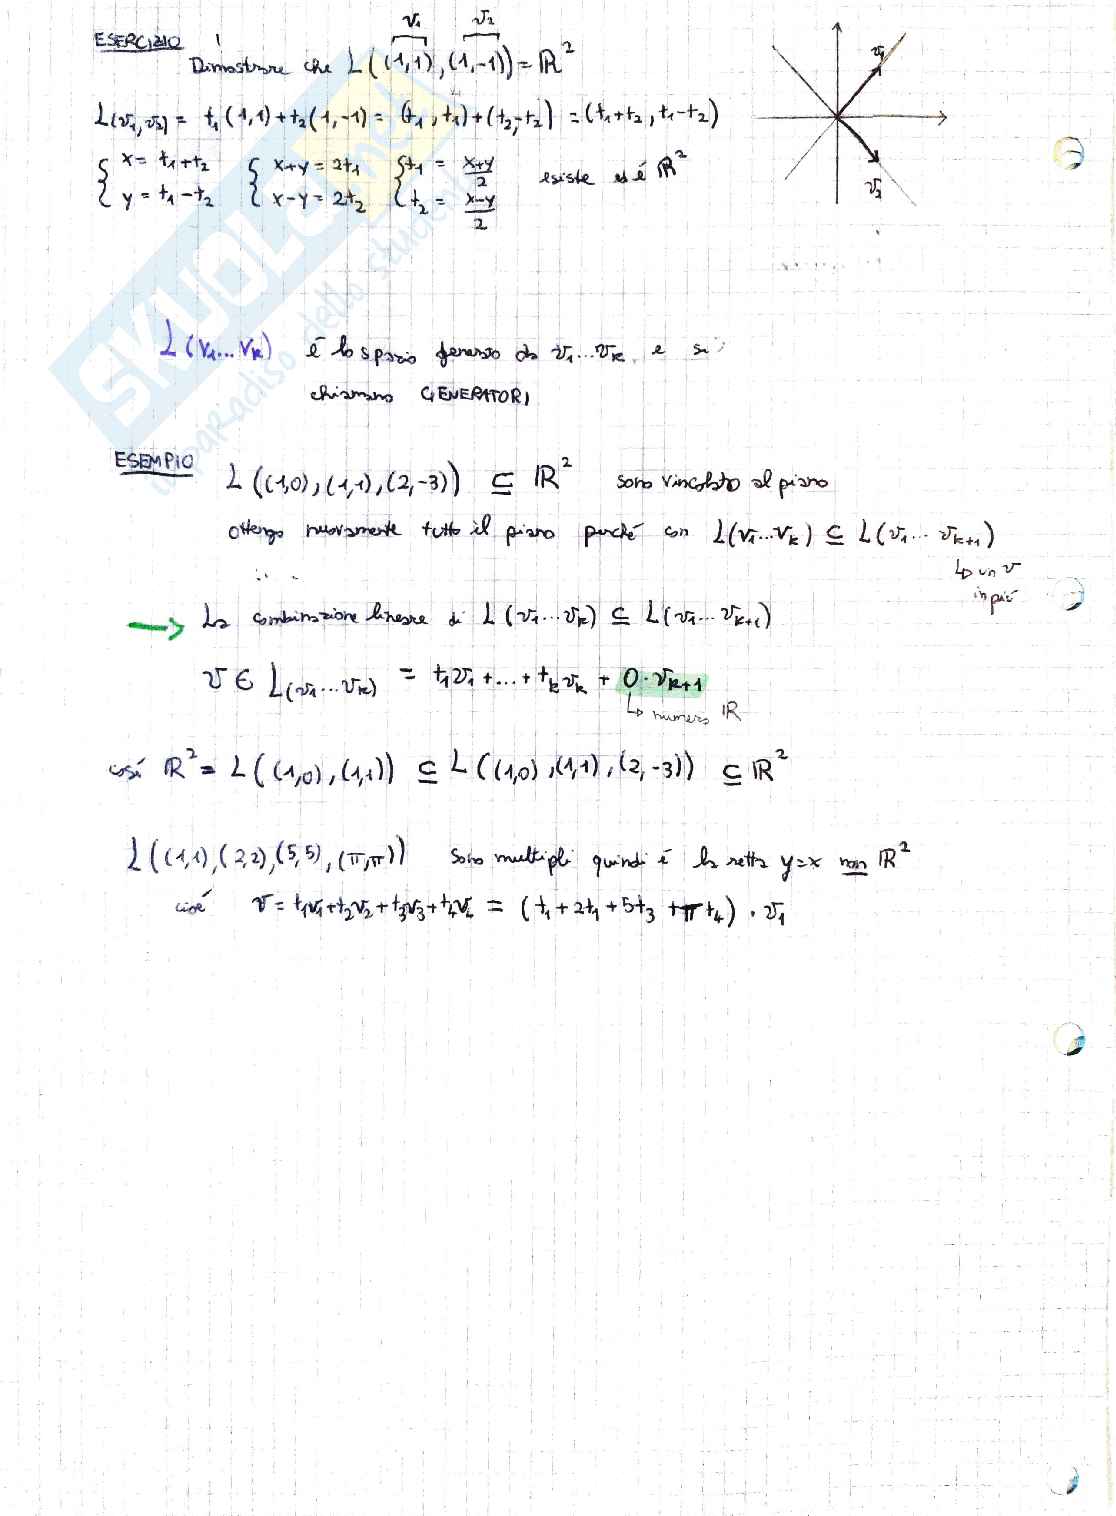 ESERCIZIO
v₁ v₂
Dimostrare che L((1,1),(1,-1)) = ℝ²
L(v₁,v₂) = t₁(1,1)+t₂(1,-1) = (t₁,t₁)+(t₂,-t₂) = (t₁+t₂, t₁-t₂)
{ x = t₁+t₂ { x+y = 2t₁ { t₁ = (x+y)/2 esiste ed è ℝ²
{ y = t₁-t₂ { x-y = 2t₂ { t₂ = (x-y)/2
v₁
v₂
L(v₁...vₖ) é lo spazio generato da v₁...vₖ e si
chiamano GENERATORI
ESEMPIO
L((1,0),(1,1),(2,-3)) ⊆ ℝ² sono vincolato al piano
ottengo nuovamente tutto il piano perché con L(v₁...vₖ) ⊆ L(v₁...vₖ₊₁)
↳ un v
in più
→ La combinazione lineare di L(v₁...vₖ) ⊆ L(v₁...vₖ₊₁)
v ∈ L(v₁...vₖ) = t₁v₁+...+tₖvₖ + 0·vₖ₊₁
↳ numero ℝ
così ℝ² = L((1,0),(1,1)) ⊆ L((1,0),(1,1),(2,-3)) ⊆ ℝ²
L((1,1),(2,2),(5,5),(π,π)) sono multipli quindi è la retta y=x non ℝ²
cioé v = t₁v₁+t₂v₂+t₃v₃+t₄v₄ = (t₁+2t₁+5t₃+πt₄)·v₁
SKUOLA.net
il paradiso dello studente